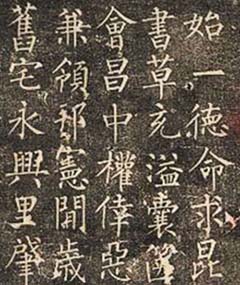 始一德命求昆
書草充溢囊篋
會昌中權倖惡
兼領邦憲間歲
舊宅永興里肇